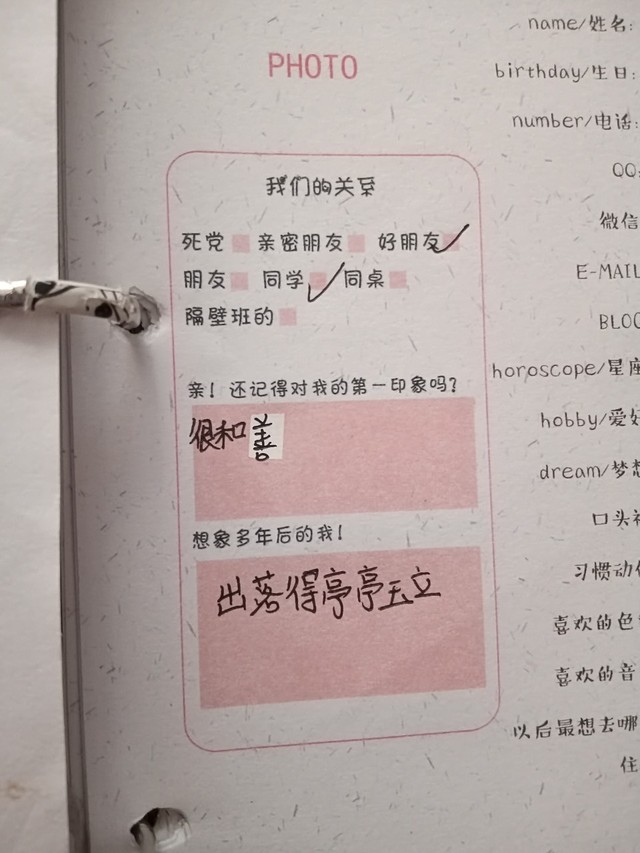 PHOTO
我们的关系
死党 亲密朋友 好朋友
朋友 同学 同桌
隔壁班的
亲！还记得对我的第一印象吗？
很和善
想象多年后的我！
出落得亭亭玉立
name/姓名:
birthday/生日:
number/电话:
QQ:
微信
E-MAIL
BLO
horoscope/星座
hobby/爱好
dream/梦想
口头
习惯动
喜欢的色
喜欢的音
以后最想去哪
住